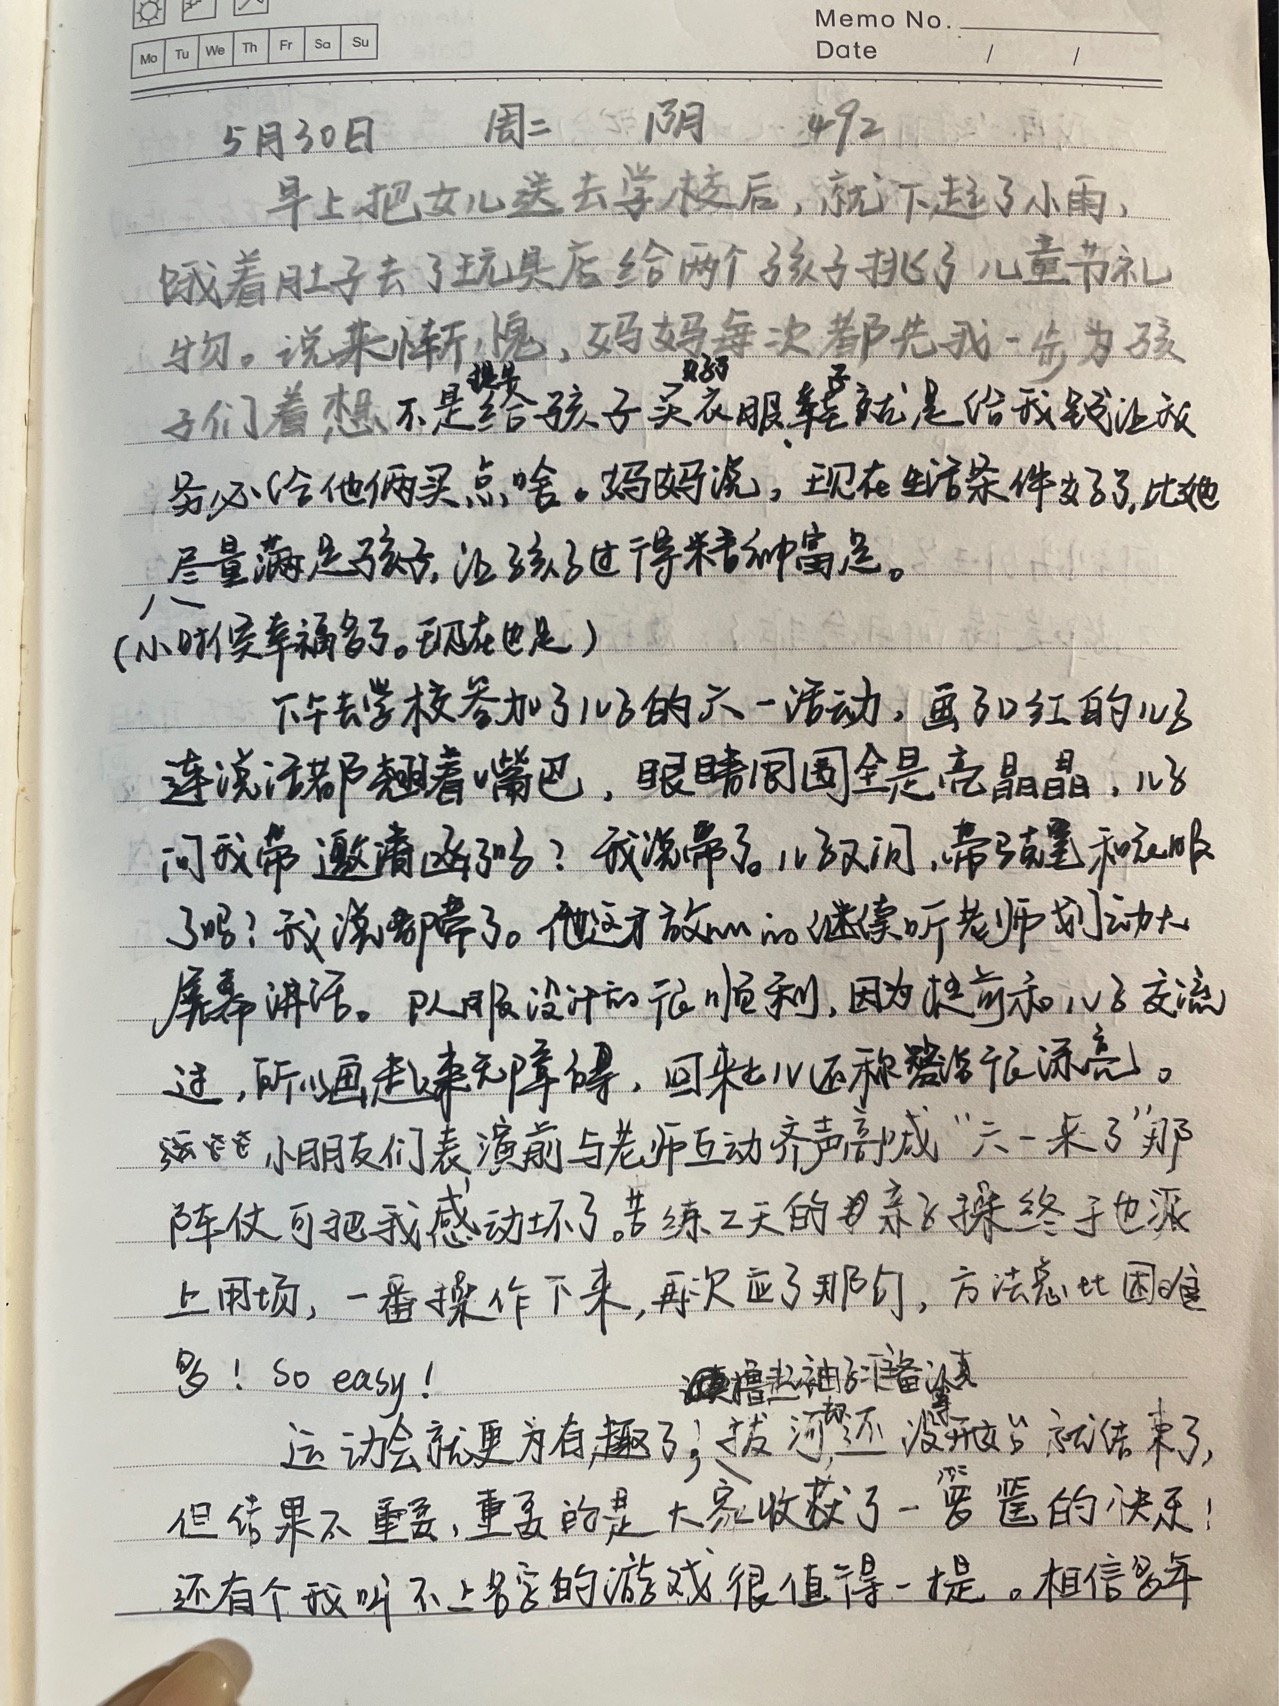 Memo No.
Mo Tu We Th Fr Sa Su
Date / /
5月30日 周二 阴 492
早上把女儿送去学校后，就下起了小雨，
饿着肚子去了玩具店给两个孩子挑了儿童节礼
物。说来惭愧，妈妈每次都先我一步为孩
子们着想 不是给孩子买衣服鞋子就是给我钱让我
务必给他俩买点啥。妈妈说，现在生活条件好了，比她
尽量满足孩子，让孩子过得精神富足。
（小时候幸福多了。现在也是）
下午去学校参加了儿子的六一活动，画了口红的儿子
连说话都翘着嘴巴，眼睛周围全是亮晶晶，儿子
问我带邀请函了吗？我说带了。儿子又问，带马克笔和衣服
了吗？我说都带了。他这才放心的继续听老师划动大
屏幕讲话。队服设计的很顺利，因为提前和儿子交流
过，所以画起来无障碍，回来女儿还称赞说很漂亮。
小朋友们表演前与老师互动齐声高喊“六一来了”那
阵仗可把我感动坏了。苦练2天的亲子操终于也派
上用场，一番操作下来，再次应了那句，方法总比困难
多！So easy！
撸起袖子准备
运动会就更为有趣了；拔河还没开始就结束了，
但结果不重要，重要的是大家收获了一箩筐的快乐！
还有个我叫不上名字的游戏很值得一提。相信多年